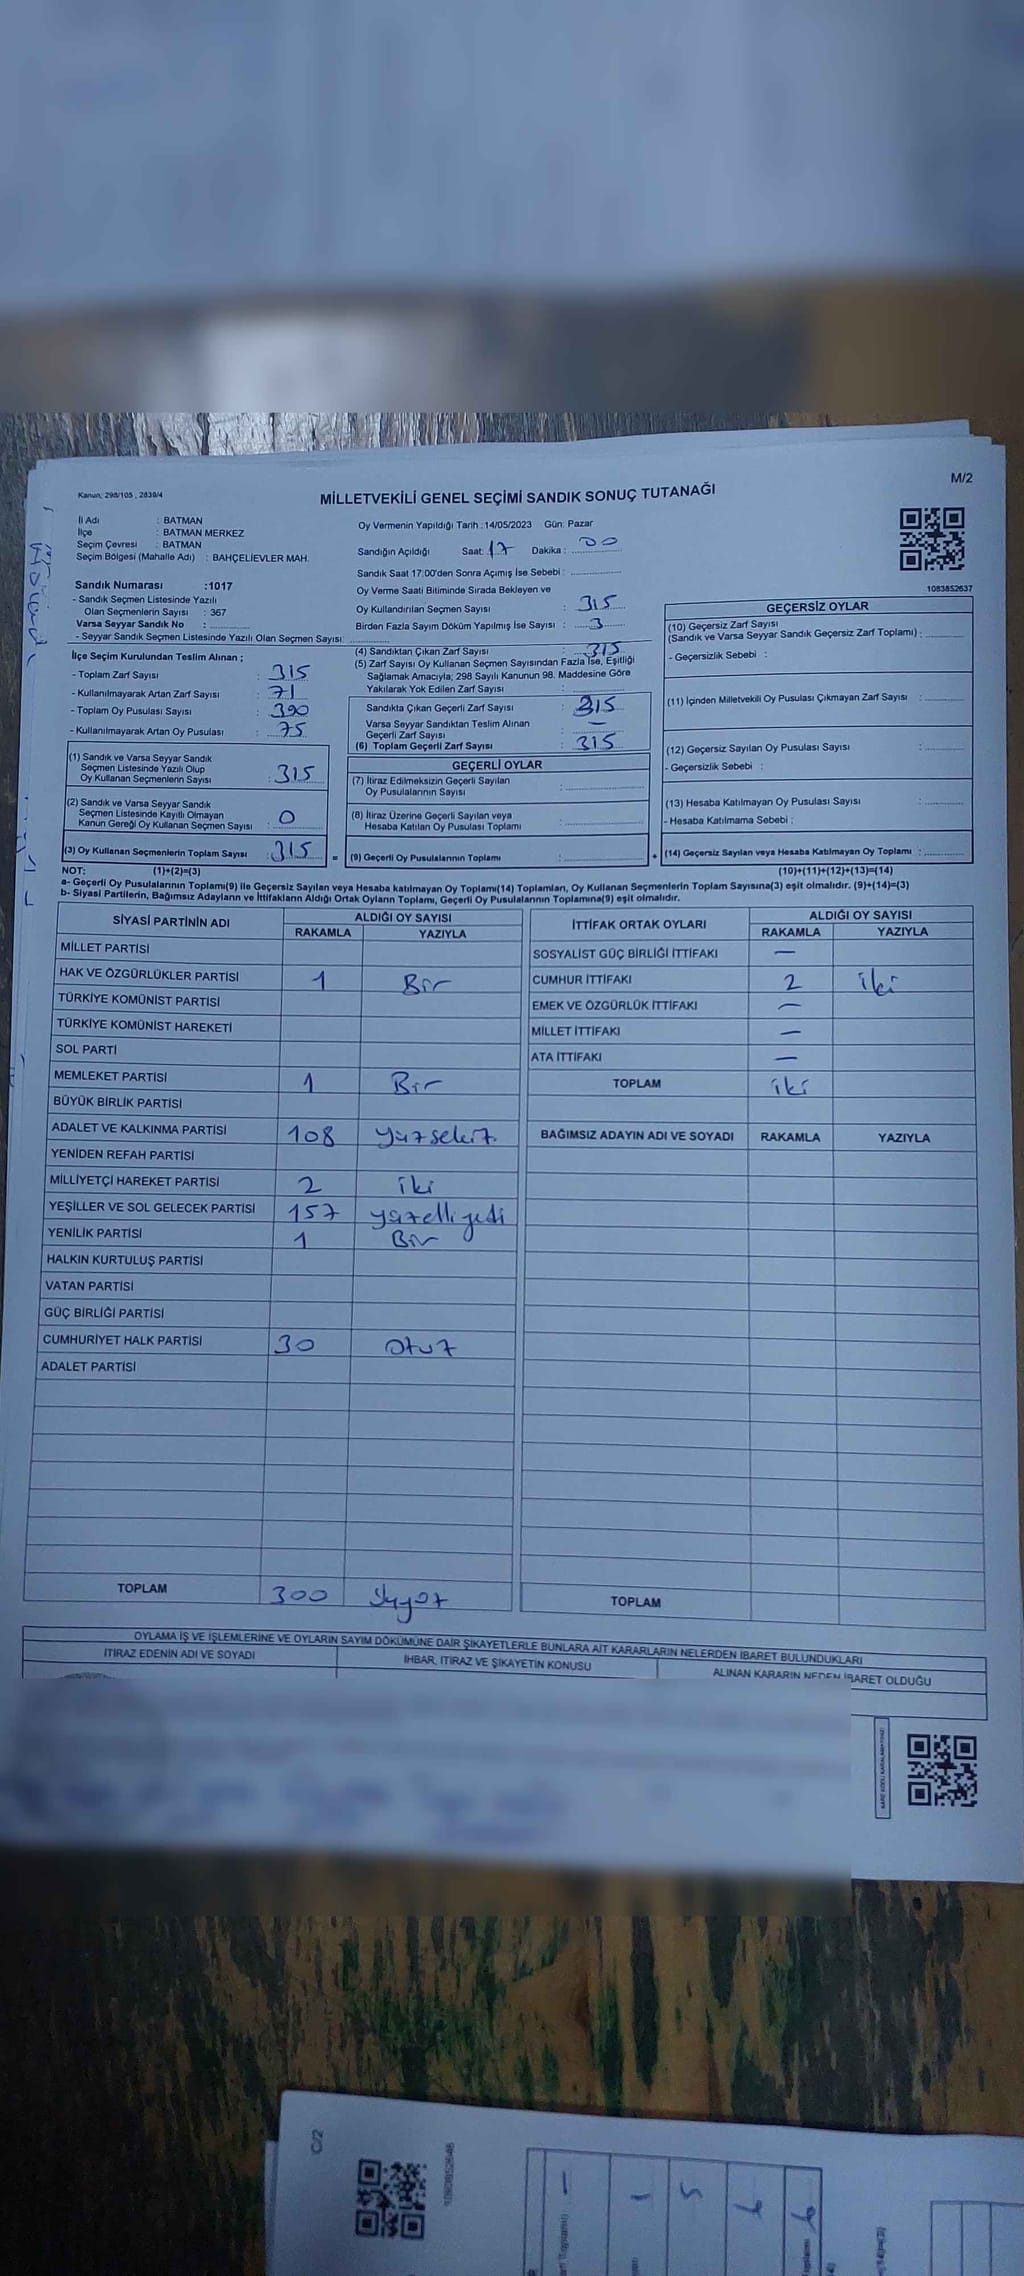 Kanun, 298/105 , 2839/4
MİLLETVEKİLİ GENEL SEÇİMİ SANDIK SONUÇ TUTANAĞI
M/2
İl Adı : BATMAN
İlçe : BATMAN MERKEZ
Seçim Çevresi : BATMAN
Seçim Bölgesi (Mahalle Adı) : BAHÇELİEVLER MAH.
Oy Vermenin Yapıldığı Tarih :14/05/2023 Gün: Pazar
Sandığın Açıldığı Saat: 17 Dakika : 00
Sandık Saat 17:00'den Sonra Açımış İse Sebebi :
1083852637
Sandık Numarası :1017
- Sandık Seçmen Listesinde Yazılı
Olan Seçmenlerin Sayısı : 367
Varsa Seyyar Sandık No :
- Seyyar Sandık Seçmen Listesinde Yazılı Olan Seçmen Sayısı:
Oy Verme Saati Bitiminde Sırada Bekleyen ve
Oy Kullandırılan Seçmen Sayısı : 315
Birden Fazla Sayım Döküm Yapılmış İse Sayısı : 3
İlçe Seçim Kurulundan Teslim Alınan ;
- Toplam Zarf Sayısı : 315
- Kullanılmayarak Artan Zarf Sayısı : 71
- Toplam Oy Pusulası Sayısı : 390
- Kullanılmayarak Artan Oy Pusulası : 75
(1) Sandık ve Varsa Seyyar Sandık
Seçmen Listesinde Yazılı Olup
Oy Kullanan Seçmenlerin Sayısı : 315
(2) Sandık ve Varsa Seyyar Sandık
Seçmen Listesinde Kayıtlı Olmayan
Kanun Gereği Oy Kullanan Seçmen Sayısı : 0
(3) Oy Kullanan Seçmenlerin Toplam Sayısı : 315 =
(4) Sandıktan Çıkan Zarf Sayısı : 315
(5) Zarf Sayısı Oy Kullanan Seçmen Sayısından Fazla İse, Eşitliği
Sağlamak Amacıyla, 298 Sayılı Kanunun 98. Maddesine Göre
Yakılarak Yok Edilen Zarf Sayısı :
Sandıkta Çıkan Geçerli Zarf Sayısı : 315
Varsa Seyyar Sandıktan Teslim Alınan
Geçerli Zarf Sayısı : —
(6) Toplam Geçerli Zarf Sayısı : 315
GEÇERLİ OYLAR
(7) İtiraz Edilmeksizin Geçerli Sayılan
Oy Pusulalarının Sayısı :
(8) İtiraz Üzerine Geçerli Sayılan veya
Hesaba Katılan Oy Pusulası Toplamı :
(9) Geçerli Oy Pusulalarının Toplamı : +
GEÇERSİZ OYLAR
(10) Geçersiz Zarf Sayısı
(Sandık ve Varsa Seyyar Sandık Geçersiz Zarf Toplamı) :
- Geçersizlik Sebebi :
(11) İçinden Milletvekili Oy Pusulası Çıkmayan Zarf Sayısı :
(12) Geçersiz Sayılan Oy Pusulası Sayısı :
- Geçersizlik Sebebi :
(13) Hesaba Katılmayan Oy Pusulası Sayısı :
- Hesaba Katılmama Sebebi :
(14) Geçersiz Sayılan veya Hesaba Katılmayan Oy Toplamı :
NOT: (1)+(2)=(3) (10)+(11)+(12)+(13)=(14)
a- Geçerli Oy Pusulalarının Toplamı(9) ile Geçersiz Sayılan veya Hesaba katılmayan Oy Toplamı(14) Toplamları, Oy Kullanan Seçmenlerin Toplam Sayısına(3) eşit olmalıdır. (9)+(14)=(3)
b- Siyasi Partilerin, Bağımsız Adayların ve İttifakların Aldığı Ortak Oyların Toplamı, Geçerli Oy Pusulalarının Toplamına(9) eşit olmalıdır.
SİYASİ PARTİNİN ADI ALDIĞI OY SAYISI
RAKAMLA YAZIYLA
MİLLET PARTİSİ
HAK VE ÖZGÜRLÜKLER PARTİSİ 1 Bir
TÜRKİYE KOMÜNİST PARTİSİ
TÜRKİYE KOMÜNİST HAREKETİ
SOL PARTİ
MEMLEKET PARTİSİ 1 Bir
BÜYÜK BİRLİK PARTİSİ
ADALET VE KALKINMA PARTİSİ 108 yüzsekiz
YENİDEN REFAH PARTİSİ
MİLLİYETÇİ HAREKET PARTİSİ 2 iki
YEŞİLLER VE SOL GELECEK PARTİSİ 157 yüzelliyedi
YENİLİK PARTİSİ 1 Bir
HALKIN KURTULUŞ PARTİSİ
VATAN PARTİSİ
GÜÇ BİRLİĞİ PARTİSİ
CUMHURİYET HALK PARTİSİ 30 otuz
ADALET PARTİSİ
TOPLAM 300 üçyüz
İTTİFAK ORTAK OYLARI ALDIĞI OY SAYISI
RAKAMLA YAZIYLA
SOSYALİST GÜÇ BİRLİĞİ İTTİFAKI —
CUMHUR İTTİFAKI 2 iki
EMEK VE ÖZGÜRLÜK İTTİFAKI —
MİLLET İTTİFAKI —
ATA İTTİFAKI —
TOPLAM iki
BAĞIMSIZ ADAYIN ADI VE SOYADI RAKAMLA YAZIYLA
TOPLAM
OYLAMA İŞ VE İŞLEMLERİNE VE OYLARIN SAYIM DÖKÜMÜNE DAİR ŞİKAYETLERLE BUNLARA AİT KARARLARIN NELERDEN İBARET BULUNDUKLARI
İTİRAZ EDENİN ADI VE SOYADI İHBAR, İTİRAZ VE ŞİKAYETİN KONUSU ALINAN KARARIN NEDEN İBARET OLDUĞU
C/2